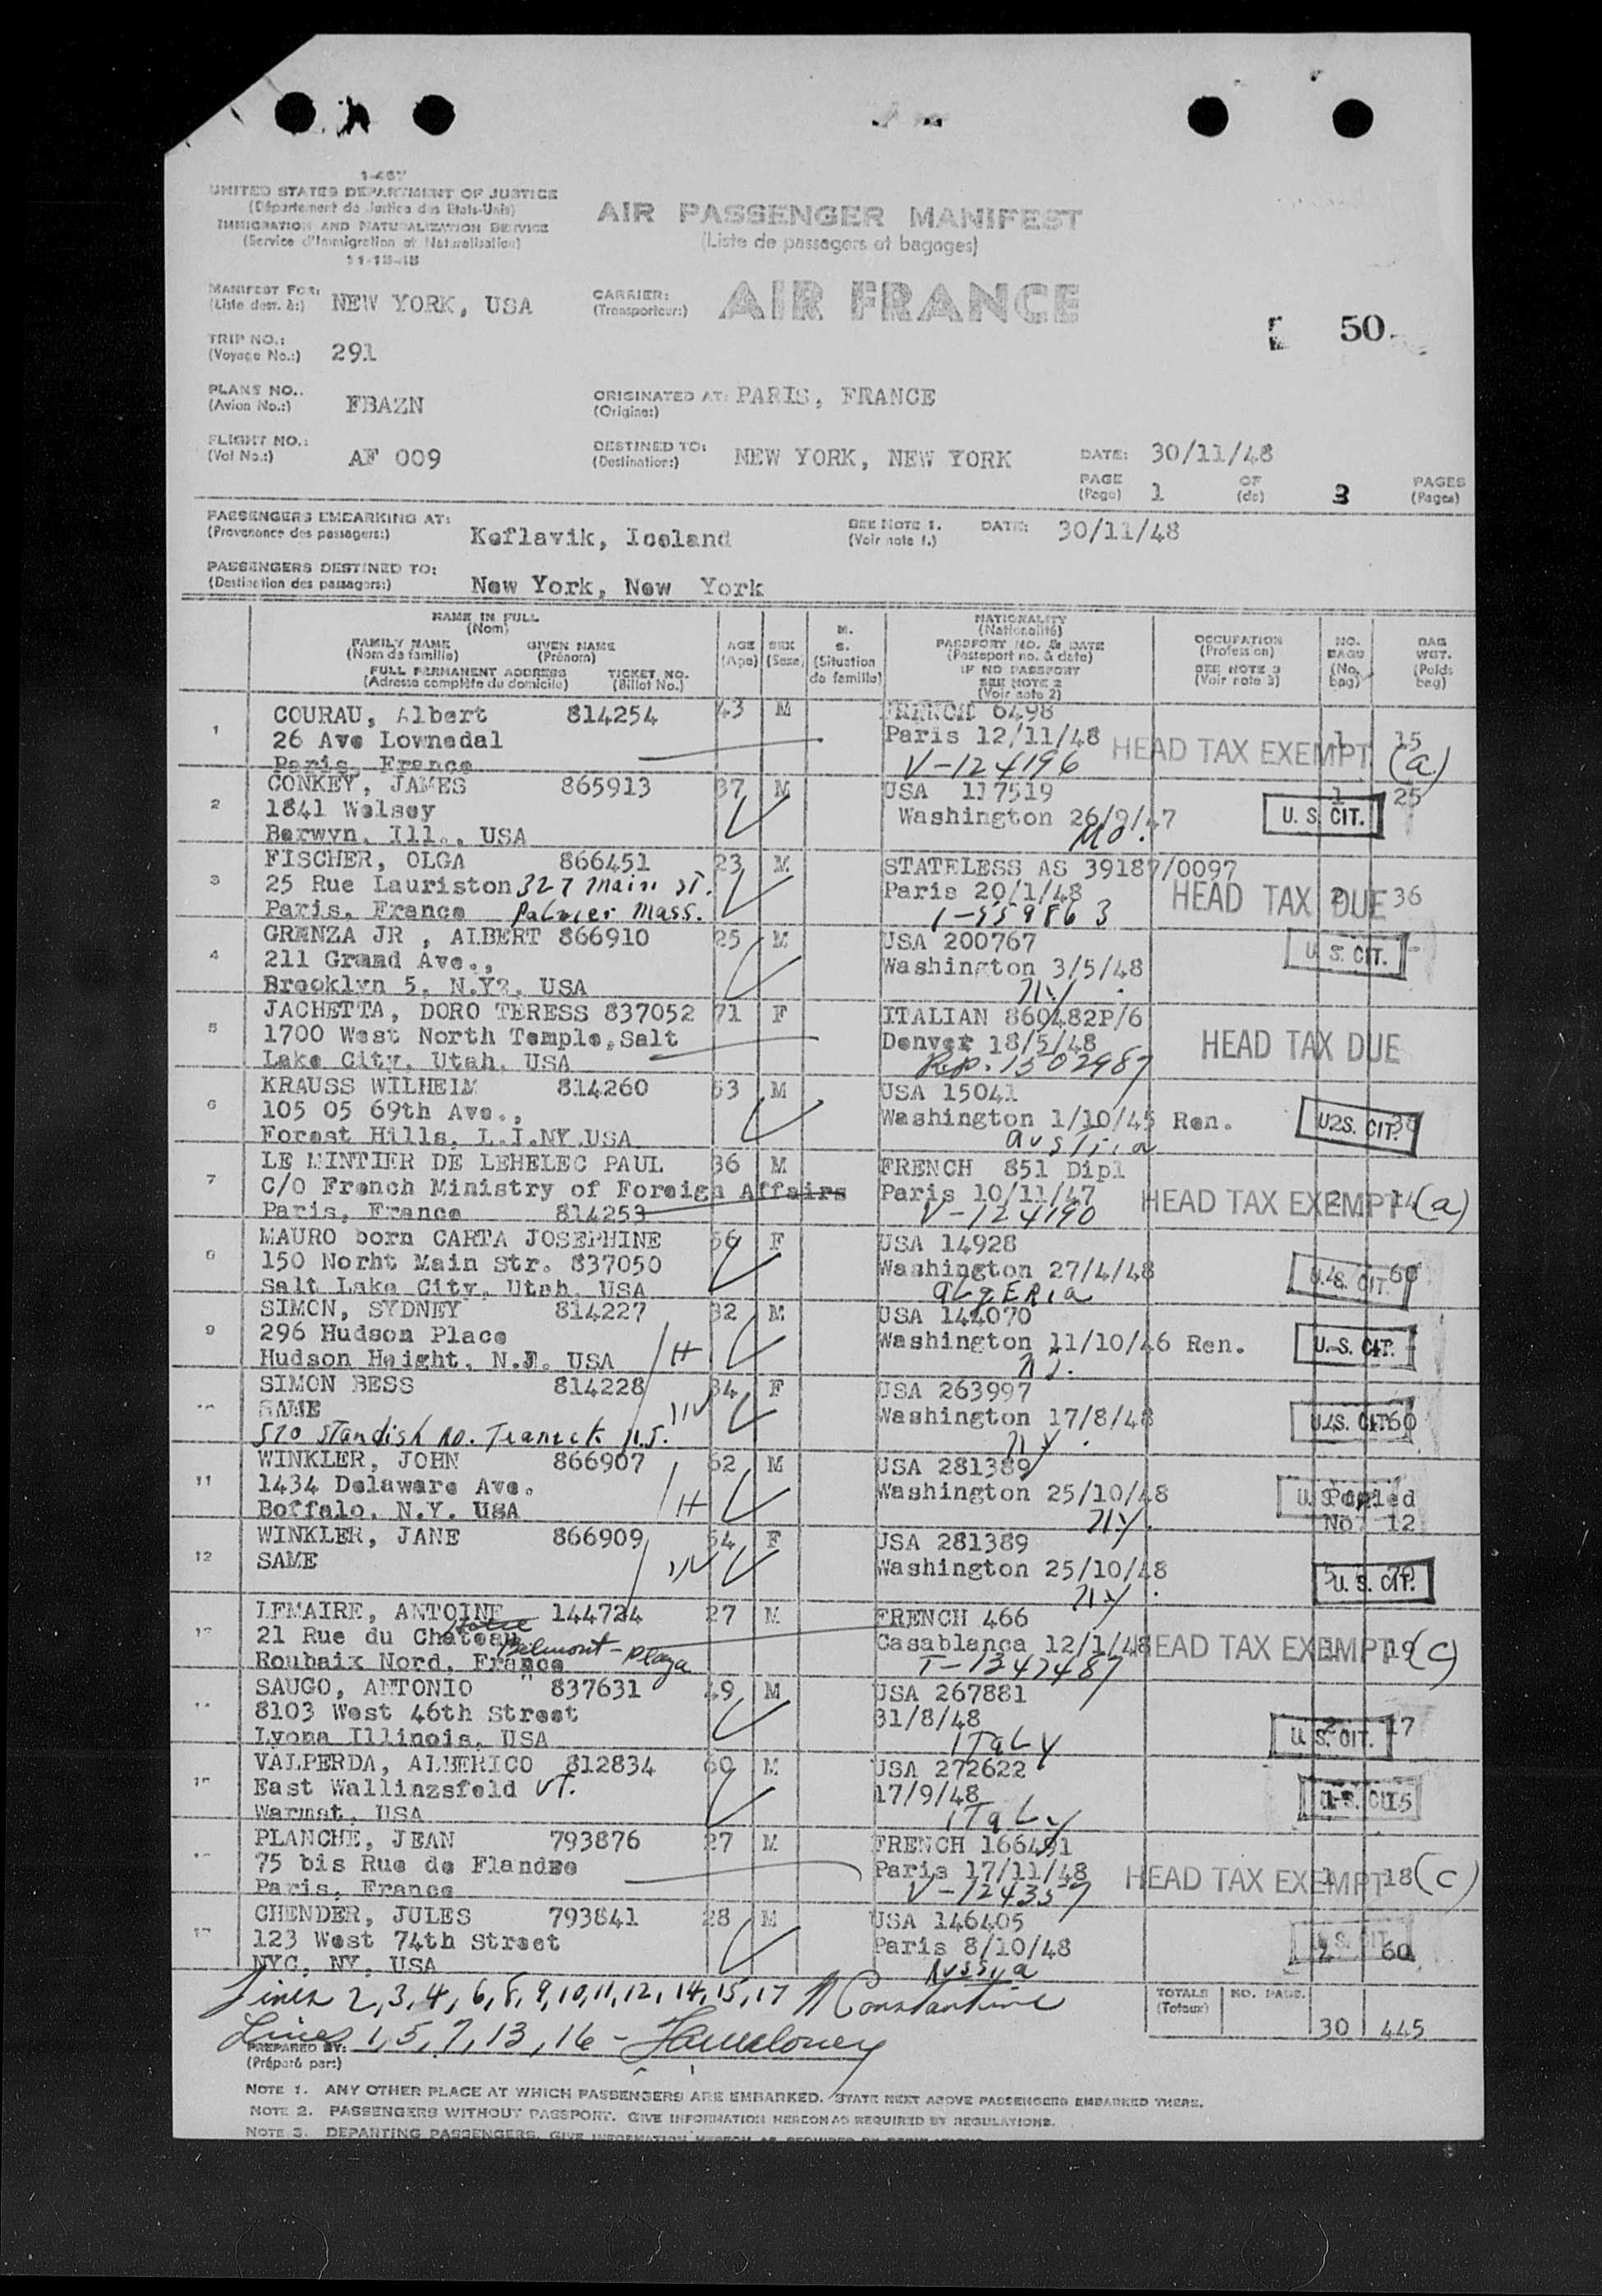 1-467
UNITED STATES DEPARTMENT OF JUSTICE
(Département de Justice des Etats-Unis)
IMMIGRATION AND NATURALIZATION SERVICE
(Service d'Immigration et Naturalisation)
11-18-48
AIR PASSENGER MANIFEST
(Liste de passagers et bagages)
MANIFEST FOR: NEW YORK, USA
(Liste dest. à:)
CARRIER: AIR FRANCE
(Transporteur:)
50.
TRIP NO.: 291
(Voyage No.:)
PLANE NO.. FBAZN
(Avion No.:)
ORIGINATED AT: PARIS, FRANCE
(Origine:)
FLIGHT NO.: AF 009
(Vol No.:)
DESTINED TO: NEW YORK, NEW YORK
(Destination:)
DATE: 30/11/48
PAGE 1 OF 3 PAGES
(Page) (de) (Pages)
PASSENGERS EMBARKING AT: Keflavik, Iceland
(Provenance des passagers:)
SEE NOTE 1. DATE: 30/11/48
(Voir note 1.)
PASSENGERS DESTINED TO: New York, New York
(Destination des passagers:)
NAME IN FULL
(Nom)
FAMILY NAME GIVEN NAME
(Nom de famille) (Prénom)
FULL PERMANENT ADDRESS TICKET NO.
(Adresse complète du domicile) (Billet No.)
AGE
(Age)
SEX
(Sexe)
M.
S.
(Situation
de famille)
NATIONALITY
(Nationalité)
PASSPORT NO. & DATE
(Passeport no. & date)
IF NO PASSPORT
SEE NOTE 2
(Voir note 2)
OCCUPATION
(Profession)
SEE NOTE 3
(Voir note 3)
NO.
BAGS
(No.
bag)
BAG
WGT.
(Poids
bag)
1 COURAU, Albert 814254 43 M FRENCH 6498
26 Ave Lownedal Paris 12/11/48 HEAD TAX EXEMPT 1 15
Paris, France V-124196 (a)
2 CONKEY, JAMES 865913 37 M USA 117519 1 25
1841 Welsey Washington 26/9/47 U. S. CIT.
Berwyn, Ill., USA Mo.
3 FISCHER, OLGA 866451 23 M STATELESS AS 39187/0097
25 Rue Lauriston 327 Main ST. Paris 20/1/48 HEAD TAX DUE 2 36
Paris, France Palmer Mass. 1-559863
4 GRENZA JR , ALBERT 866910 25 M USA 200767 U. S. CIT. -
211 Grand Ave., Washington 3/5/48
Brooklyn 5, N.Y?, USA NY
5 JACHETTA, DORO TERESS 837052 71 F ITALIAN 860482P/6
1700 West North Temple, Salt Denver 18/5/48 HEAD TAX DUE
Lake City, Utah, USA Rep. 1502987
6 KRAUSS WILHEIM 814260 53 M USA 15041
105 05 69th Ave., Washington 1/10/45 Ren. U. S. CIT. 2 38
Forest Hills, L.I.NY.USA austria
7 LE MINTIER DE LEHELEC PAUL 36 M FRENCH 851 Dipl
C/O French Ministry of Foreign Affairs Paris 10/11/47 HEAD TAX EXEMPT 2 14 (a)
Paris, France 814253 V-124190
8 MAURO born CARTA JOSEPHINE 56 F USA 14928
150 Norht Main Str. 837050 Washington 27/4/48 U. S. CIT. 4 60
Salt Lake City, Utah, USA aLgERia
9 SIMON, SYDNEY 814227 32 M USA 144070
296 Hudson Place Washington 11/10/46 Ren. U. S. CIT. - -
Hudson Height, N.J. USA H NJ.
SIMON BESS 814228 34 F USA 263997
SAME W Washington 17/8/48 U. S. CIT. 4 60
570 Standish Rd. Teaneck N.J. NY.
11 WINKLER, JOHN 866907 62 M USA 281389
1434 Delaware Ave. Washington 25/10/48 U. S. CIT. Pooled
Boffalo, N.Y. USA H NY. No 12
12 WINKLER, JANE 866909 54 F USA 281389
SAME W Washington 25/10/48 U. S. CIT. 5 70
NY.
13 LEMAIRE, ANTOINE 144724 27 M FRENCH 466
21 Rue du Chateau Hotel Belmont-Plaza Casablanca 12/1/48 HEAD TAX EXEMPT 1 19 (c)
Roubaix Nord, France T-1247487
SAUGO, ANTONIO " 837631 49 M USA 267881
8103 West 46th Street 31/8/48 U. S. CIT. 2 17
Lyons Illinois, USA ITaLy
VALPERDA, ALBERICO 812834 60 M USA 272622
East Wallinzsfeld VT. 17/9/48 U. S. CIT. 1 15
Warmat, USA ITaLy
PLANCHE, JEAN 793876 27 M FRENCH 166491
75 bis Rue de Flandre Paris 17/11/48 HEAD TAX EXEMPT 1 18 (c)
Paris, France V-124357
CHENDER, JULES 793841 28 M USA 146405
123 West 74th Street Paris 8/10/48 U. S. CIT. 4 60
NYC, NY, USA Russia
Lines 2,3,4,6,8,9,10,11,12,14,15,17 Constantine
TOTALS NO. PASS. 30 445
(Totaux)
Lines 1,5,7,13,16 -
PREPARED BY:
(Préparé par:)
NOTE 1. ANY OTHER PLACE AT WHICH PASSENGERS ARE EMBARKED. STATE NEXT ABOVE PASSENGERS EMBARKED THERE.
NOTE 2. PASSENGERS WITHOUT PASSPORT. GIVE INFORMATION HEREON AS REQUIRED BY REGULATIONS.
NOTE 3. DEPARTING PASSENGERS. GIVE INFORMATION HEREON AS REQUIRED BY REGULATIONS.